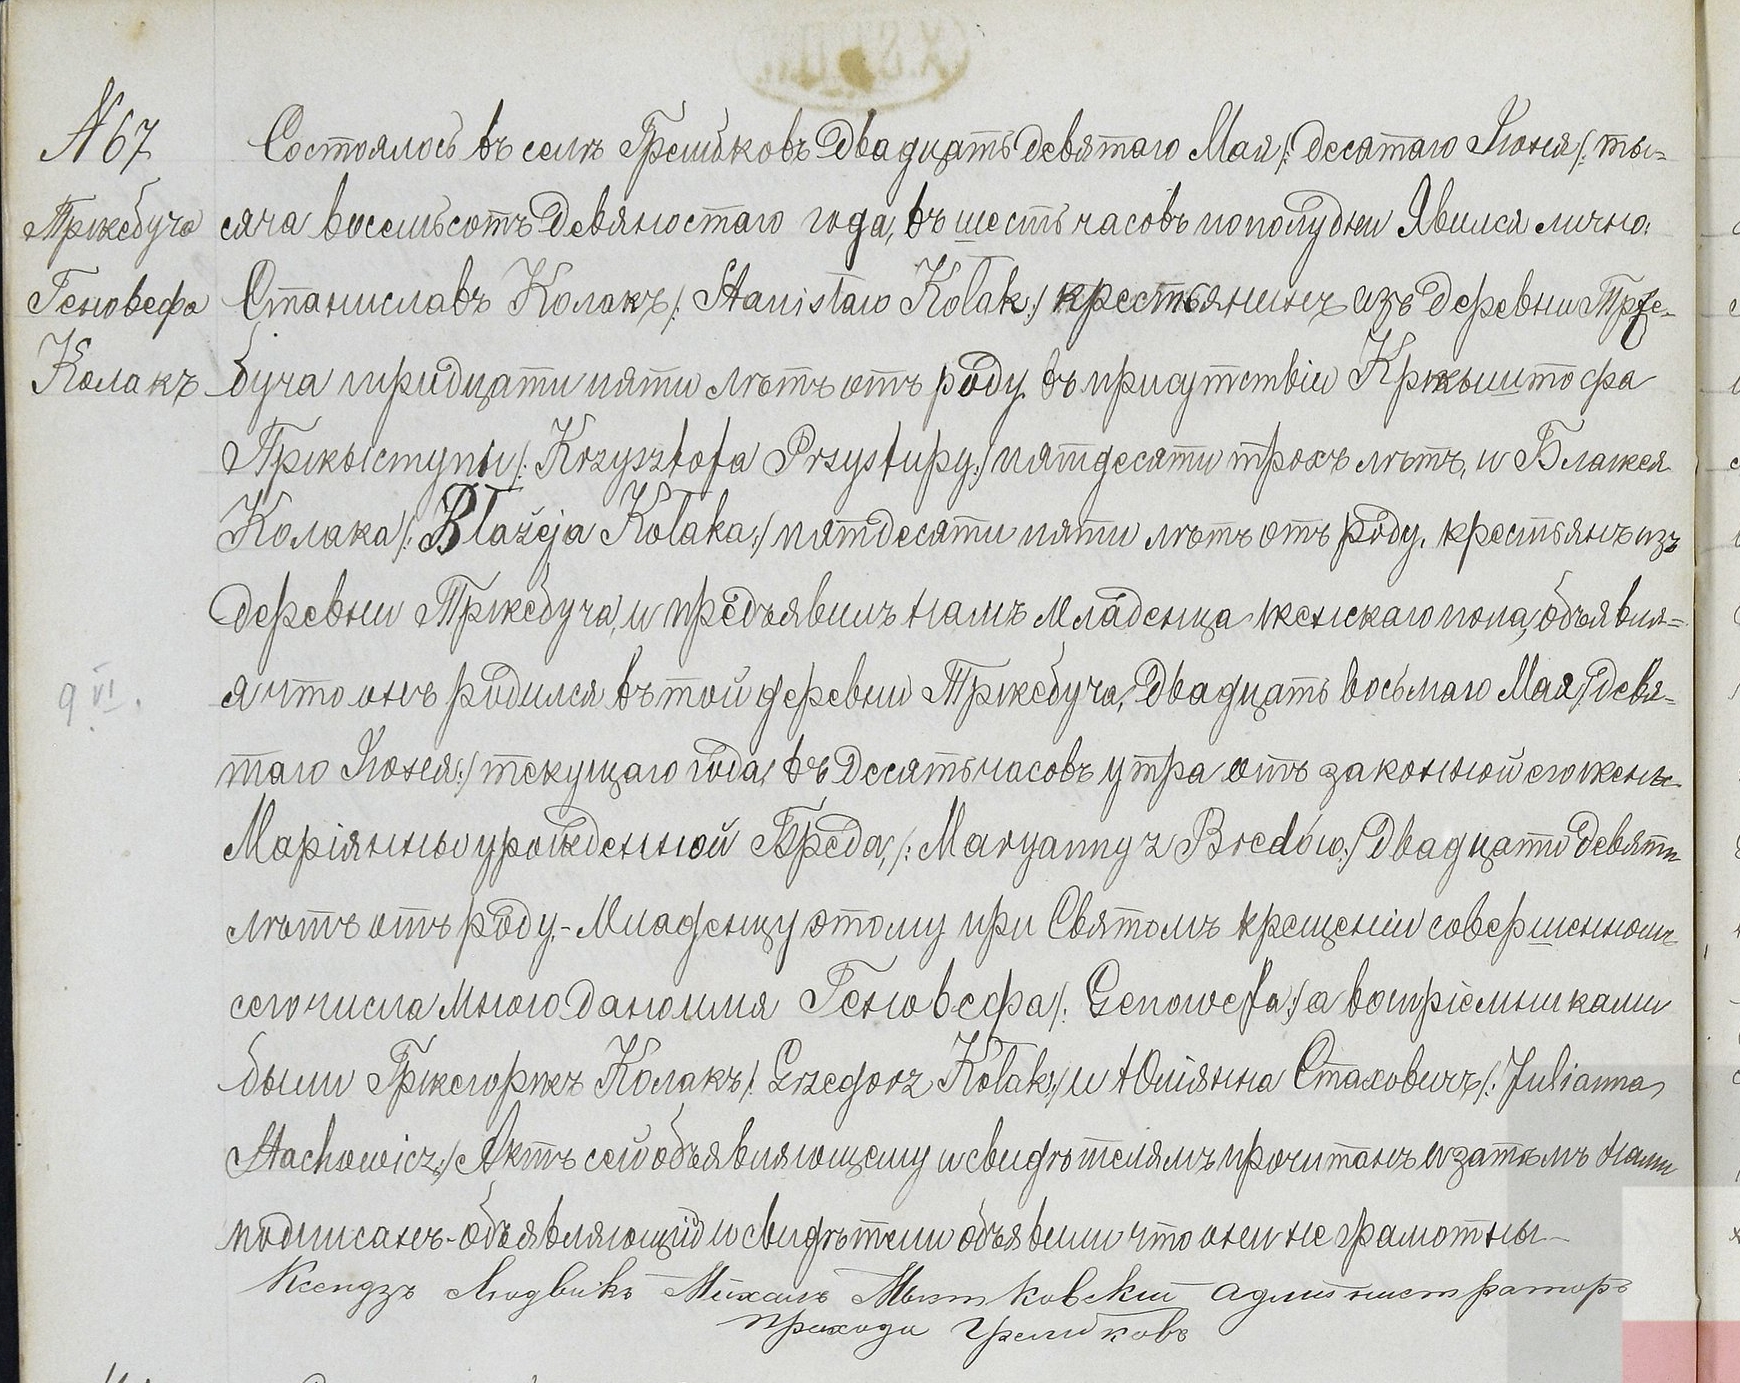 № 67
Тржебуча
Геновефа
Колакъ
Состоялось въ селѣ Грембковъ Двадцать девятаго Мая /: десятаго Іюня /: ты=
сяча восемьсотъ Девяностаго года, въ шесть часовъ пополудни Явился лично:
Станиславъ Колакъ /: Stanisław Kołak :/ крестьянинъ изъ деревни Трже-
буча тридцати пяти лѣтъ отъ роду въ присутствіи Кржыштофа
Пржыступы /: Krzysztofa Przystupy :/ пятдесяти трохъ лѣтъ, и Блажея
Колака /: Błażeja Kołaka :/ пятдесяти пяти лѣтъ отъ роду, крестьянъ изъ
деревни Тржебуча, и предъявилъ намъ младенца женскаго пола, объявля=
я что онъ родился въ той деревни Тржебуча, Двадцать восьмаго Мая /: девя=
таго Іюня :/ текущаго года, въ Десять часовъ утра отъ законной его жены
Маріянны урожденной Бреда, /: Maryanny z Bredów :/ Двадцати девяти
лѣтъ отъ роду.- Младенцу этому при Святомъ крещеніи совершенномъ
сего числа мною дано имя Геновефа /: Genowefa :/ а воспріемниками
были Гржегоржъ Колакъ /: Grzegorz Kołak :/ и Юліянна Стаховичъ /: Julianna
Stachowicz :/ Актъ сей объявляющему и свидѣтелямъ прочитанъ и затѣмъ нами
подписанъ - объявляющій и свидѣтели объявили что они не грамотны -
Ксендзъ Людвикъ Михалъ Мытковскій администраторъ
прихода Грембковъ
9 VI.